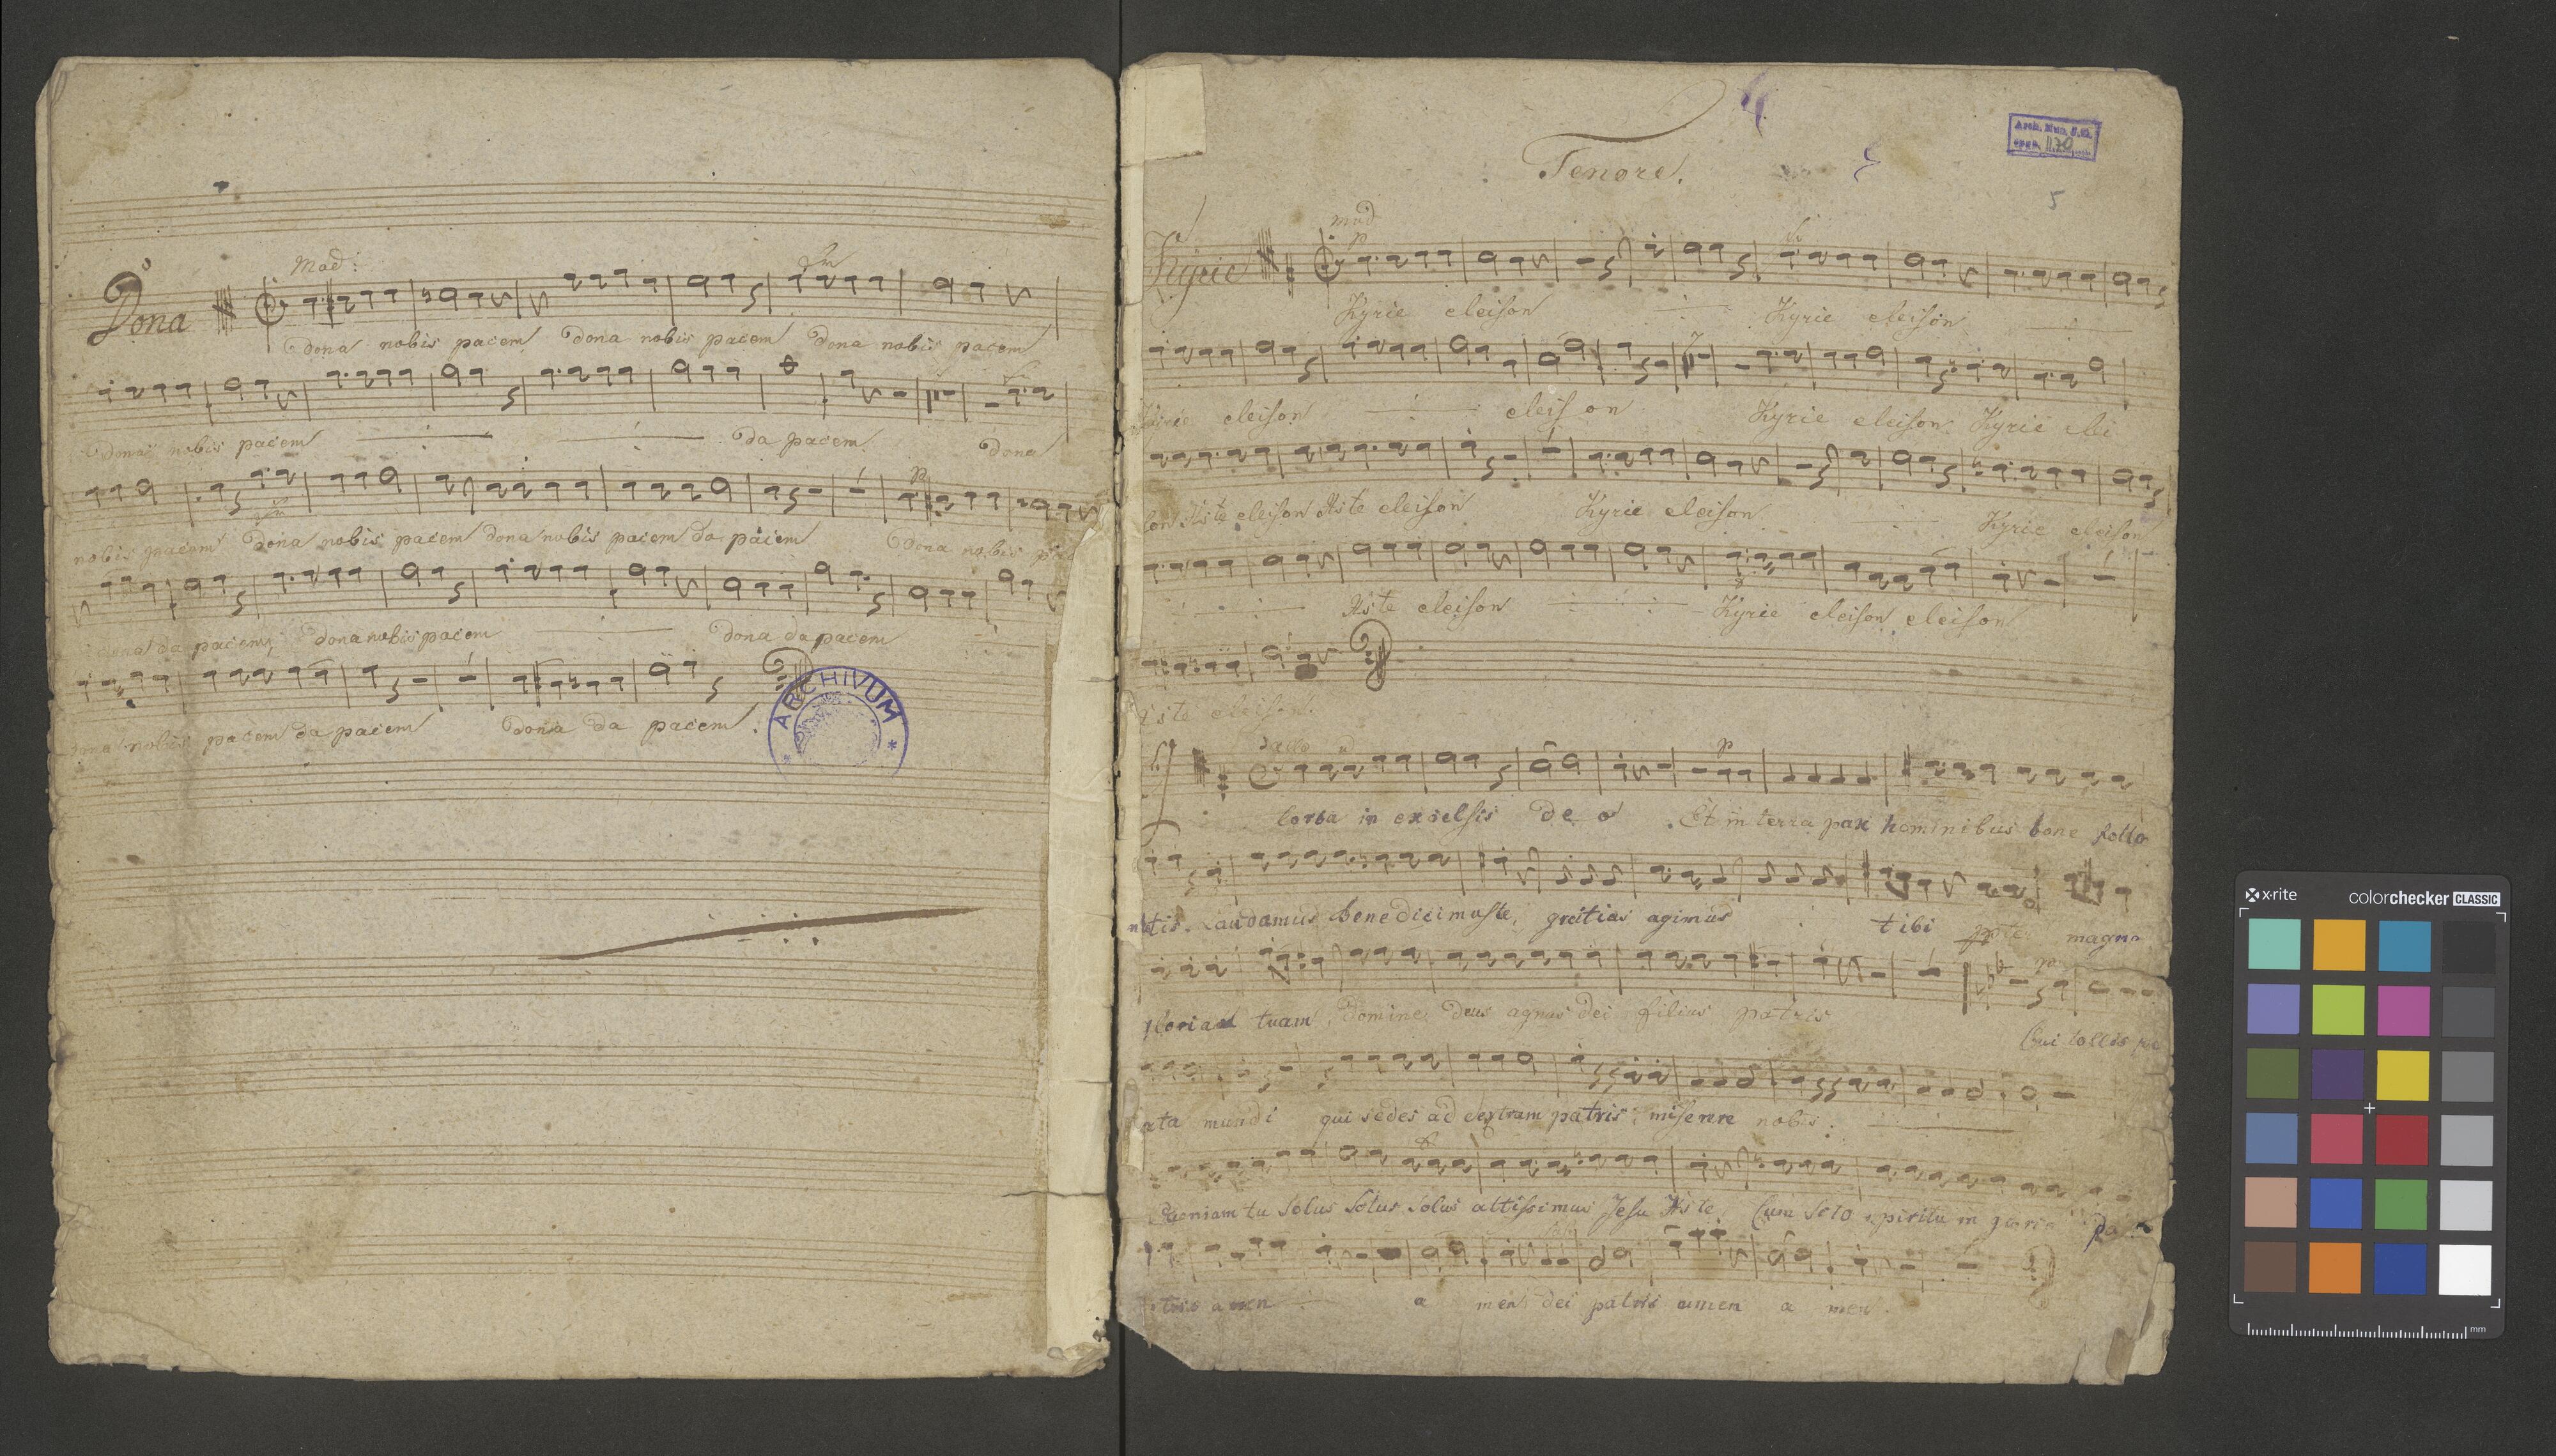 Mod:
Dona
Dona nobis pacem Dona nobis pacem Dona nobis pacem
Dona nobis pacem da pacem Dona
nobis pacem Dona nobis pacem dona nobis pacem da pacem Dona nobis
dona da pacem, Dona nobis pacem dona da pacem
Dona nobis pacem da pacem Dona da pacem.
ARCHIVUM
4
Tenore.
5
Arch. Mus.
1170
mod
p
Kyrie
Kyrie eleison Kyrie eleison
Kyrie eleison eleison Kyrie eleison. Kyrie elei
son Xste eleison Xste eleison Kyrie eleison Kyrie eleison
Xste eleison Kyrie eleison eleison
Xste eleison.
p
loria in excelsis De o Et in terra pax hominibus bone
Laudamus benedicimus te, gratias agimus tibi magna
p
gloriam tuam, Domine Deus agnus dei filius patris
Qui tollis
cata mundi qui sedes ad dextram patris: miserere nobis:
Quoniam tu solus solus solus altissimus Jesu Xste Cum Scto spiritu in gloria
tris amen a men dei patris amen a men.
x-rite colorchecker CLASSIC
mm